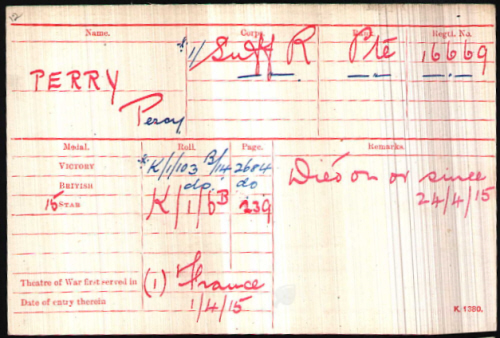 Name. Corps. Rank. Regtl. No.
*1/ Suff R Pte 16669
PERRY
Percy
Medal. Roll. Page. Remarks
VICTORY *K/1/103 B/14 2684 Died on or since
BRITISH do do 24/4/15
15 STAR K/1/6B 239
Theatre of War first served in (1) France
Date of entry therein 1/4/15
K 1380.